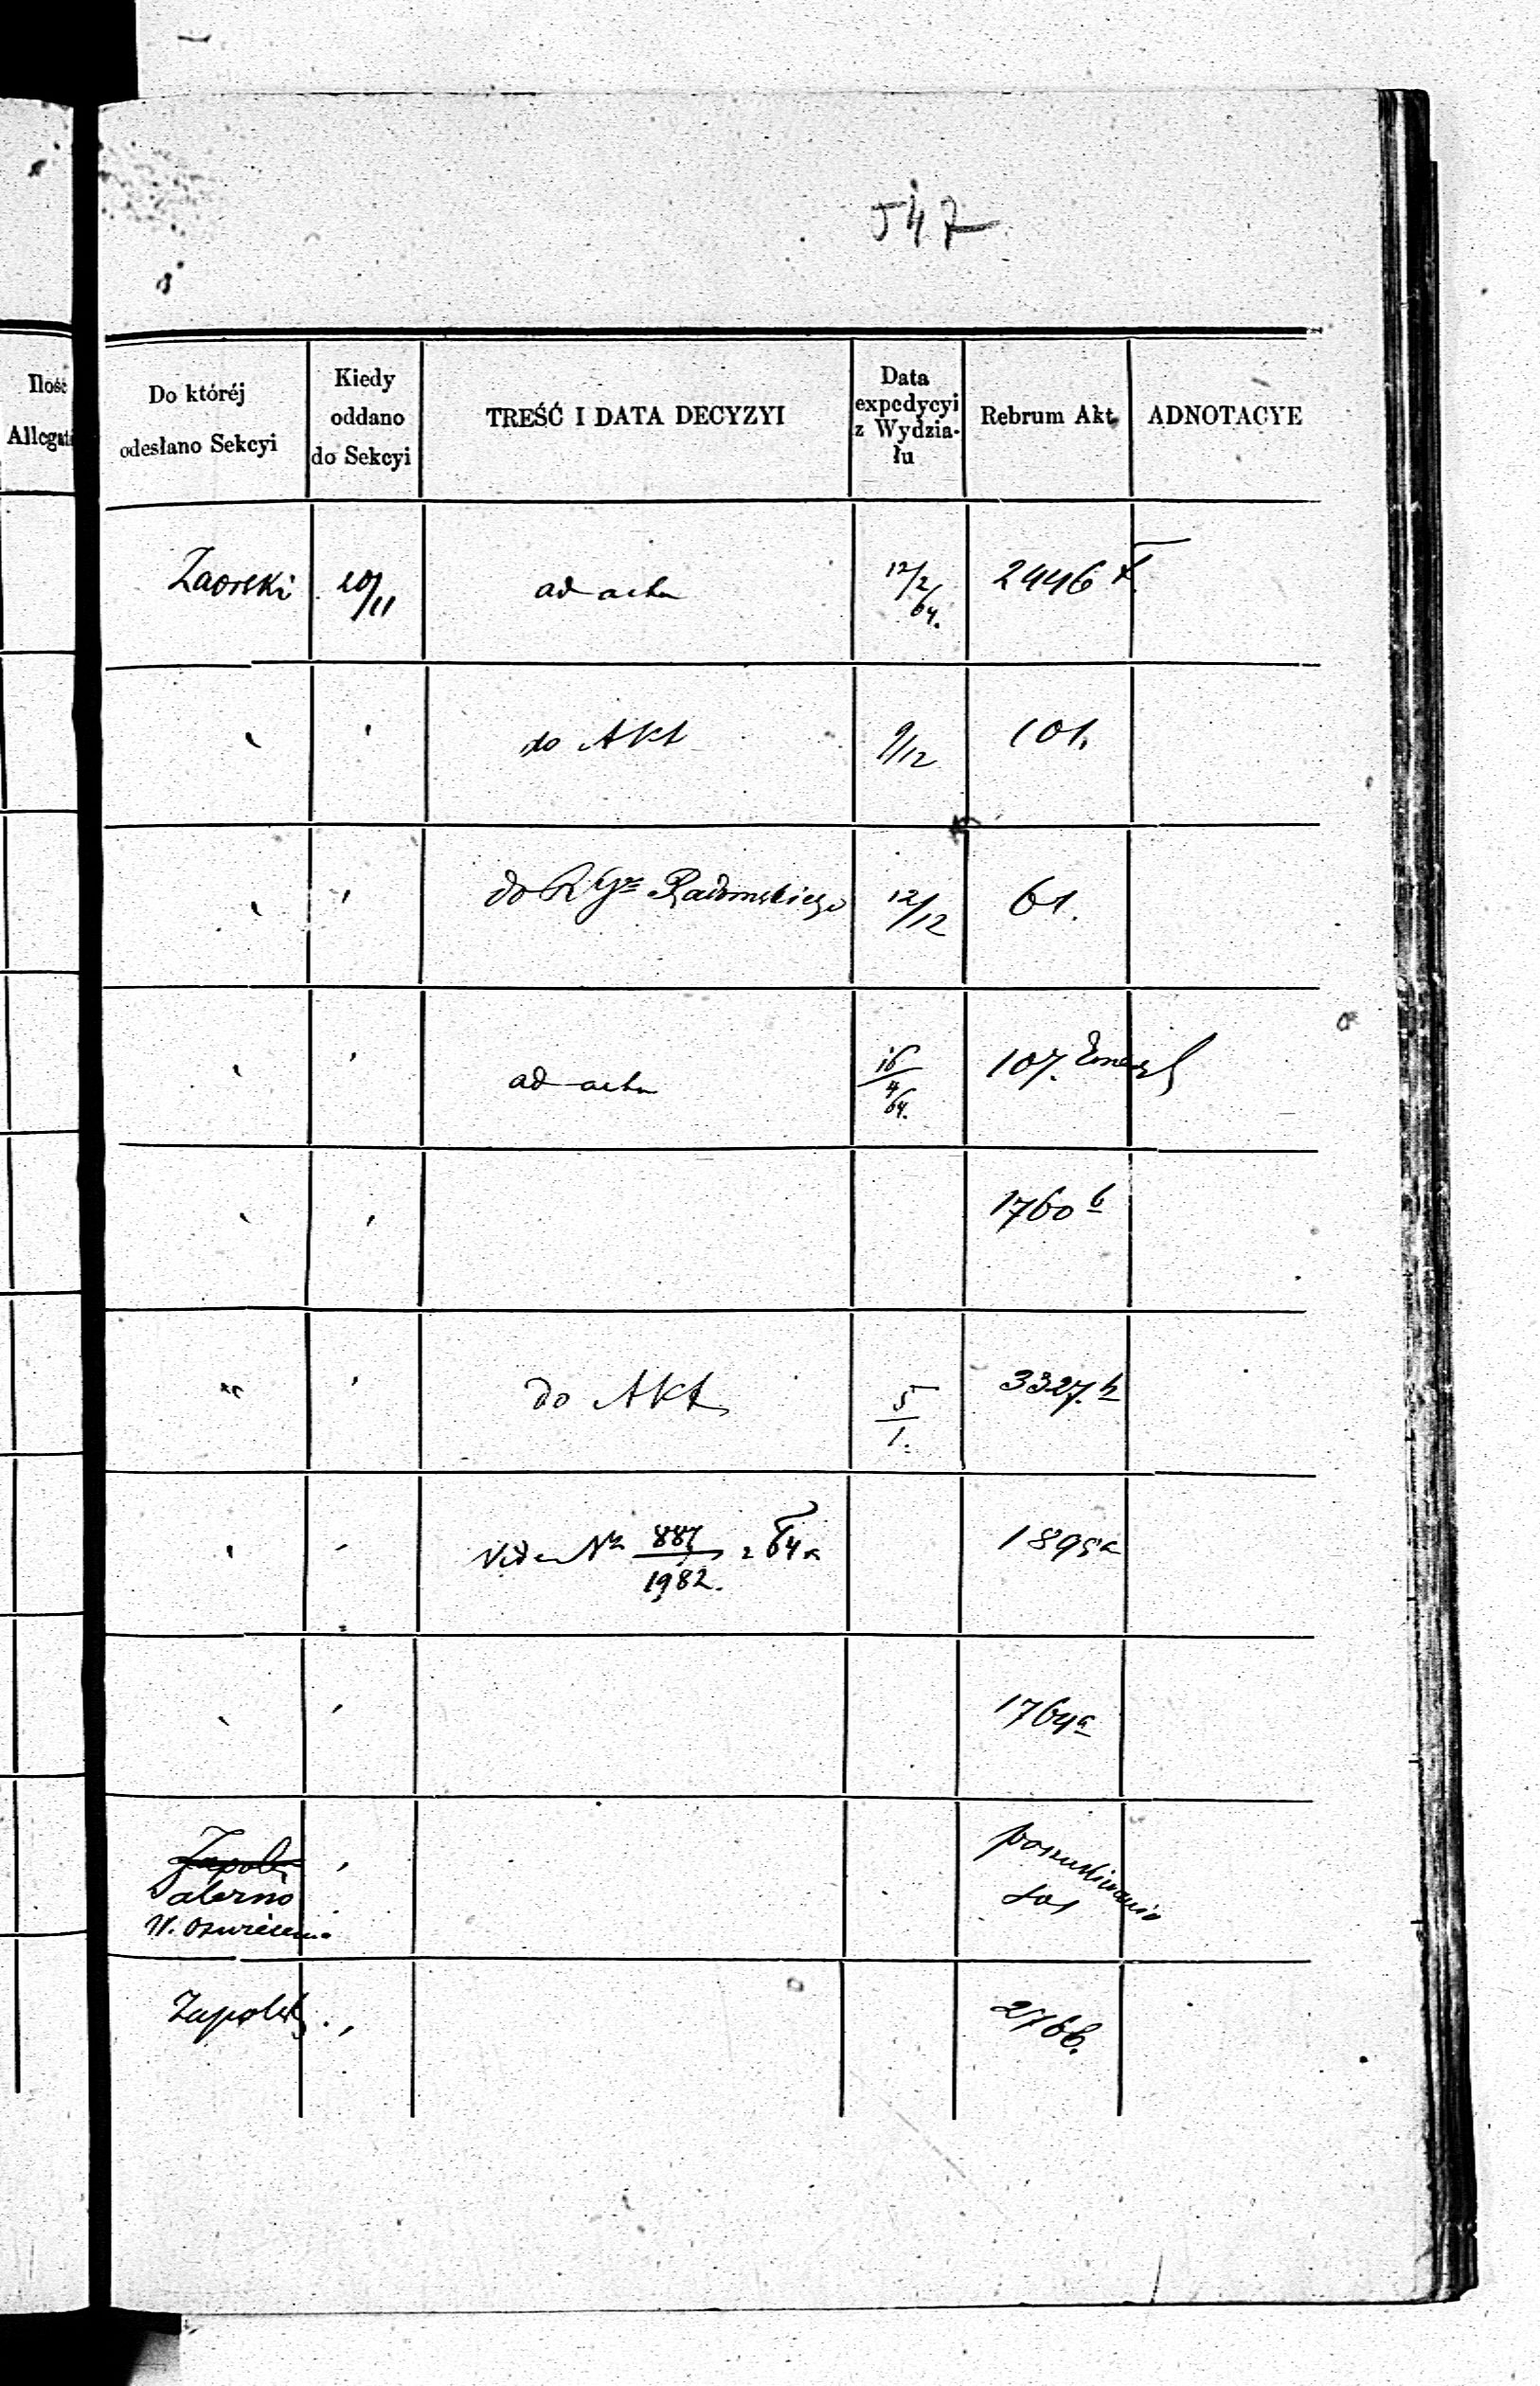 547
Ilość
Allegat
Do któréj
odesłano Sekcyi
Kiedy
oddano
do Sekcyi
TREŚĆ I DATA DECYZYI
Data
expedycyi
z Wydzia-
łu
Rebrum Akt
ADNOTACYE
Zaorski 20/11 ad acta 12/2/64. 2446
" " do Akt 9/12 101.
" " do R Gu Radomskiego 12/12 61.
" " ad acta 16/4/64. 107.
" " 1760 b
" " do Akt 5/1. 3327. b
" " Vide No 887/1982. z 64 r 1895 a
" " 1764 a
Zapols "
Palerno
W. Oswiecenia
poszukiwania
Zapolsk " 2766.